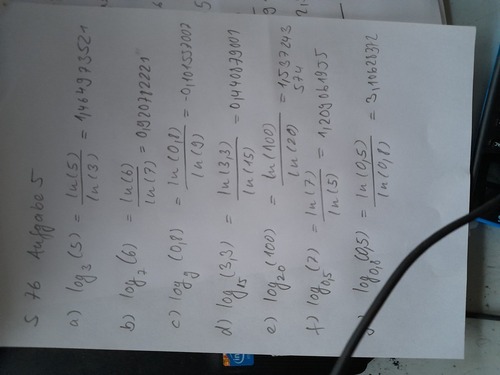 S 76 Aufgabe 5
a) log₃ (5) = ln(5)/ln(3) = 1,464973521
b) log₇ (6) = ln(6)/ln(7) = 0,920782221
c) log₉ (0,8) = ln(0,8)/ln(9) = -0,101557007
d) log₁₅ (3,3) = ln(3,3)/ln(15) = 0,440879001
e) log₂₀ (100) = ln(100)/ln(20) = 1,537243
574
f) log₀,₅ (7) = ln(7)/ln(5) = 1,209061955
log₀,₈ (0,5) = ln(0,5)/ln(0,8) = 3,10628372